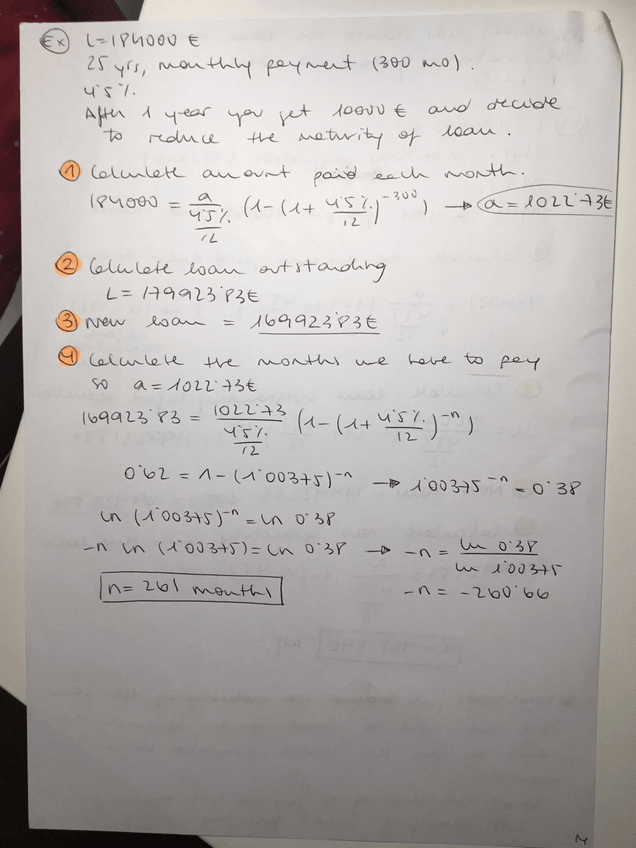 Ex L=184000 €
25 yrs, monthly payment (300 mo).
4'5%.
After 1 year you get 10000 € and decide
to reduce the maturity of loan.
1 Calculate amount paid each month.
184000 = a / (4'5% / 12) (1-(1+ 4'5% / 12)^-300) → a = 1022'73€
2 Calculate loan outstanding
L = 179923'83€
3 New loan = 169923'83€
4 Calculate the months we have to pay
so a = 1022'73€
169923'83 = 1022'73 / (4'5% / 12) (1-(1+ 4'5% / 12)^-n)
0'62 = 1-(1'00375)^-n → 1'00375^-n = 0'38
ln (1'00375)^-n = ln 0'38
-n ln (1'00375) = ln 0'38 → -n = ln 0'38 / ln 1'00375
n = 261 months -n = -260'66